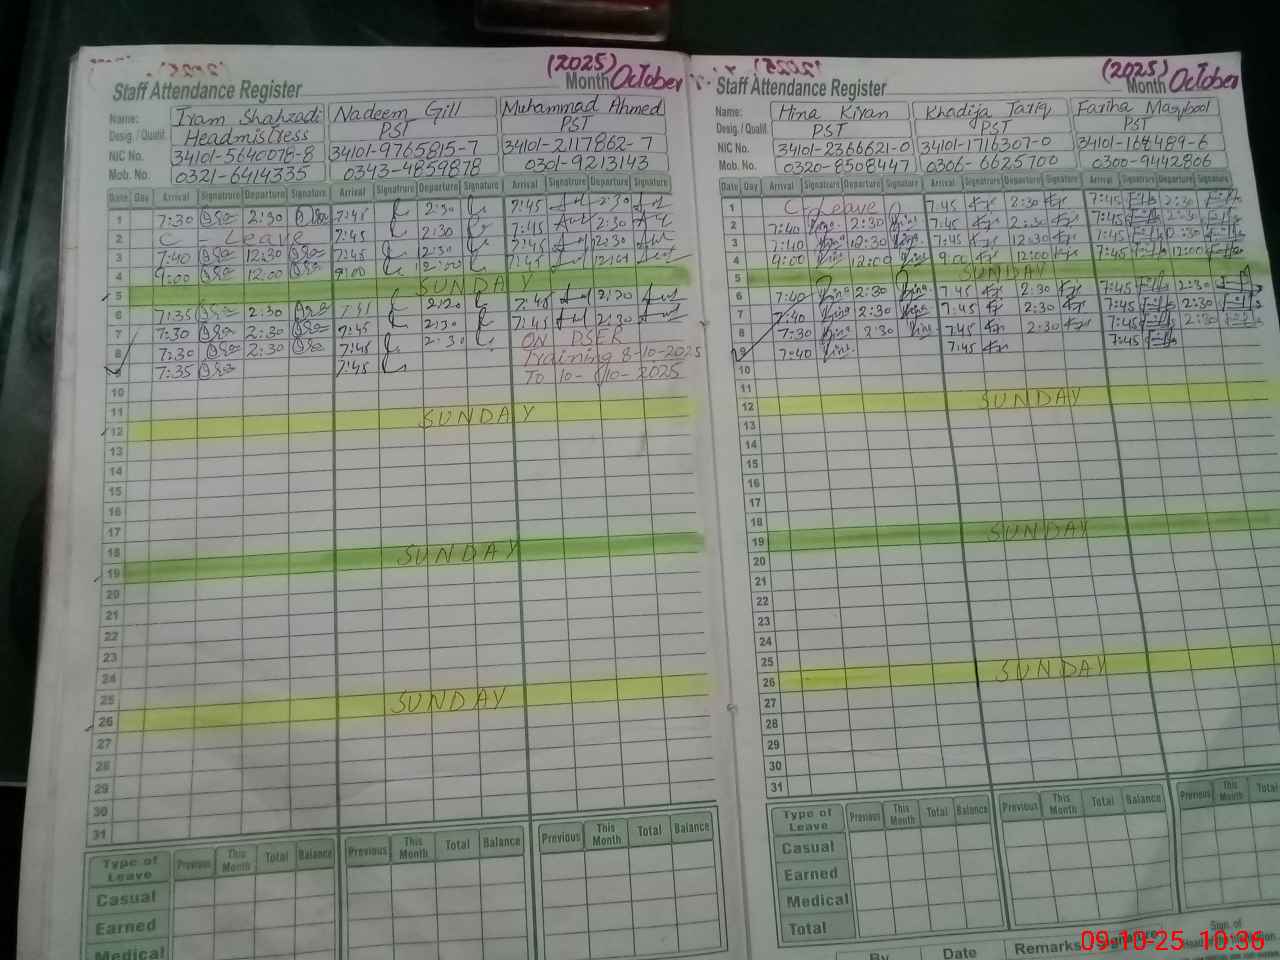 (2025)
Staff Attendance Register Month October
Name: Iram Shahzadi Nadeem Gill Muhammad Ahmed
Desig. / Qualif. Headmistress PST PST
NIC No. 34101-5640078-8 34101-9765815-7 34101-2117862-7
Mob. No. 0321-6414335 0343-4859878 0301-9213143
Date Day Arrival Signatrure Departure Signature Arrival Signatrure Departure Signature Arrival Signatrure Departure Signature
1 7:30 2:30 7:45 2:30 7:45 2:30
2 C - Leave 7:45 2:30 7:45 2:30
3 7:40 12:30 7:45 2:30 7:45 12:30
4 9:00 12:00 9:00 12:00 7:45 12:00
5 SUNDAY
6 7:35 2:30 2:30 7:45 2:30
7 7:30 2:30 7:45 2:30 7:45 2:30
8 7:30 2:30 7:45 2:30 ON DSER
9 7:35 7:45 Training 8-10-2025
10 To 10-10-2025
11
12 SUNDAY
13
14
15
16
17
18
19 SUNDAY
20
21
22
23
24
25
26 SUNDAY
27
28
29
30
31
Type of Leave Previous This Month Total Balance Previous This Month Total Balance Previous This Month Total Balance
Casual
Earned
Medical
(2025)
Staff Attendance Register Month October
Name: Hina Kiran Khadija Tariq Fariha Maqbool
Desig. / Qualif. PST PST PST
NIC No. 34101-2366621-0 34101-1716307-0
Mob. No. 0320-8508447 0306-6625700 0300-9442806
Date Day Arrival Signatrure Departure Signature Arrival Signatrure Departure Signature Arrival Signatrure Departure Signature
1 C-Leave 7:45 2:30 7:45 2:30
2 7:40 2:30 7:45 2:30 7:45 2:30
3 7:40 12:30 7:45 12:30 7:45 12:30
4 9:00 12:00 9:00 12:00 7:45 12:00
5 SUNDAY
6 7:40 2:30 7:45 2:30 7:45 2:30
7 7:40 2:30 7:45 2:30 7:45 2:30
8 7:30 2:30 7:45 2:30 7:45 2:30
9 7:40 7:45 7:45
10
11
12 SUNDAY
13
14
15
16
17
18
19 SUNDAY
20
21
22
23
24
25
26 SUNDAY
27
28
29
30
31
Type of Leave Previous This Month Total Balance Previous This Month Total Balance Previous This Month Total
Casual
Earned
Medical
Total
By Date Remarks Signature Sign of
09-10-25 10:36